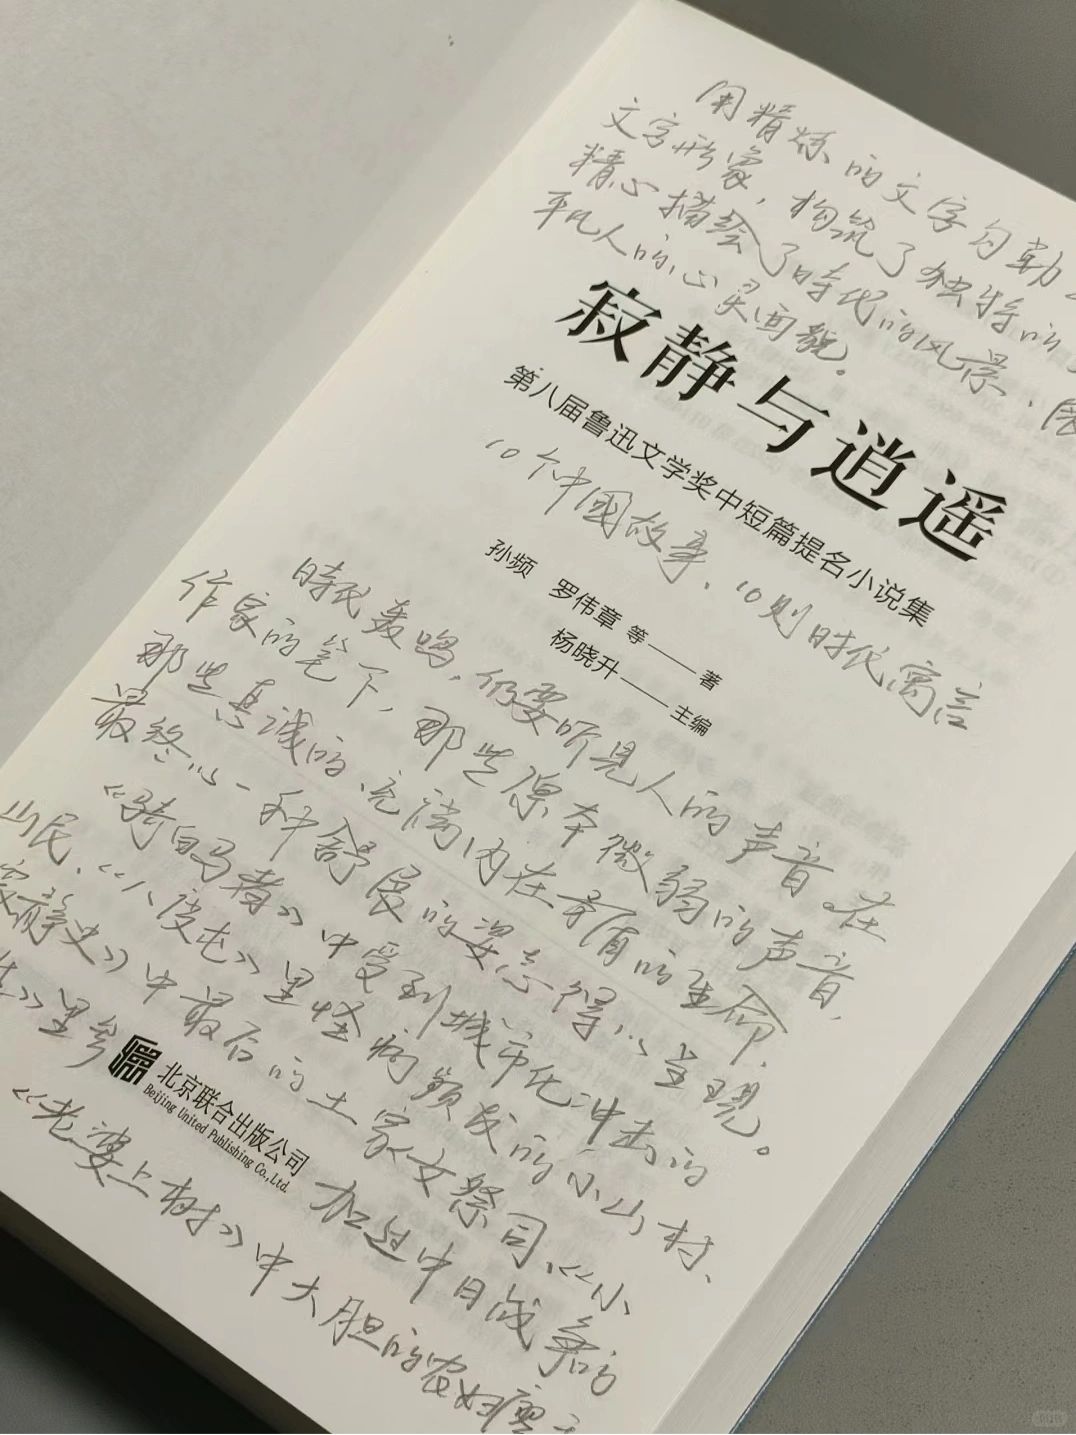 用精炼的文字勾勒
文字形象，构筑了独特的
精心描绘了時代的风景、展
平凡人的心灵面貌。
寂静与逍遥
第八届鲁迅文学奖中短篇提名小说集
10个中國故事、10则时代寓言
孙频 罗伟章 等——著
杨晓升——主编
時代轰鸣，仍要听見人的声音。在
作家的笔下，那些原本微弱的声音，
那些真诚的、充满内在价值的生命，
最终以一种舒展的姿态得以呈现。
《骑白马者》中受到城市化冲击的
山民、《八度屯》里怪病频发的小山村、
寂静史》中最后的土家女祭司、《小
》里参加过中日战争的
《老婆上树》中大胆的农妇廖
北京联合出版公司
Beijing United Publishing Co.,Ltd.